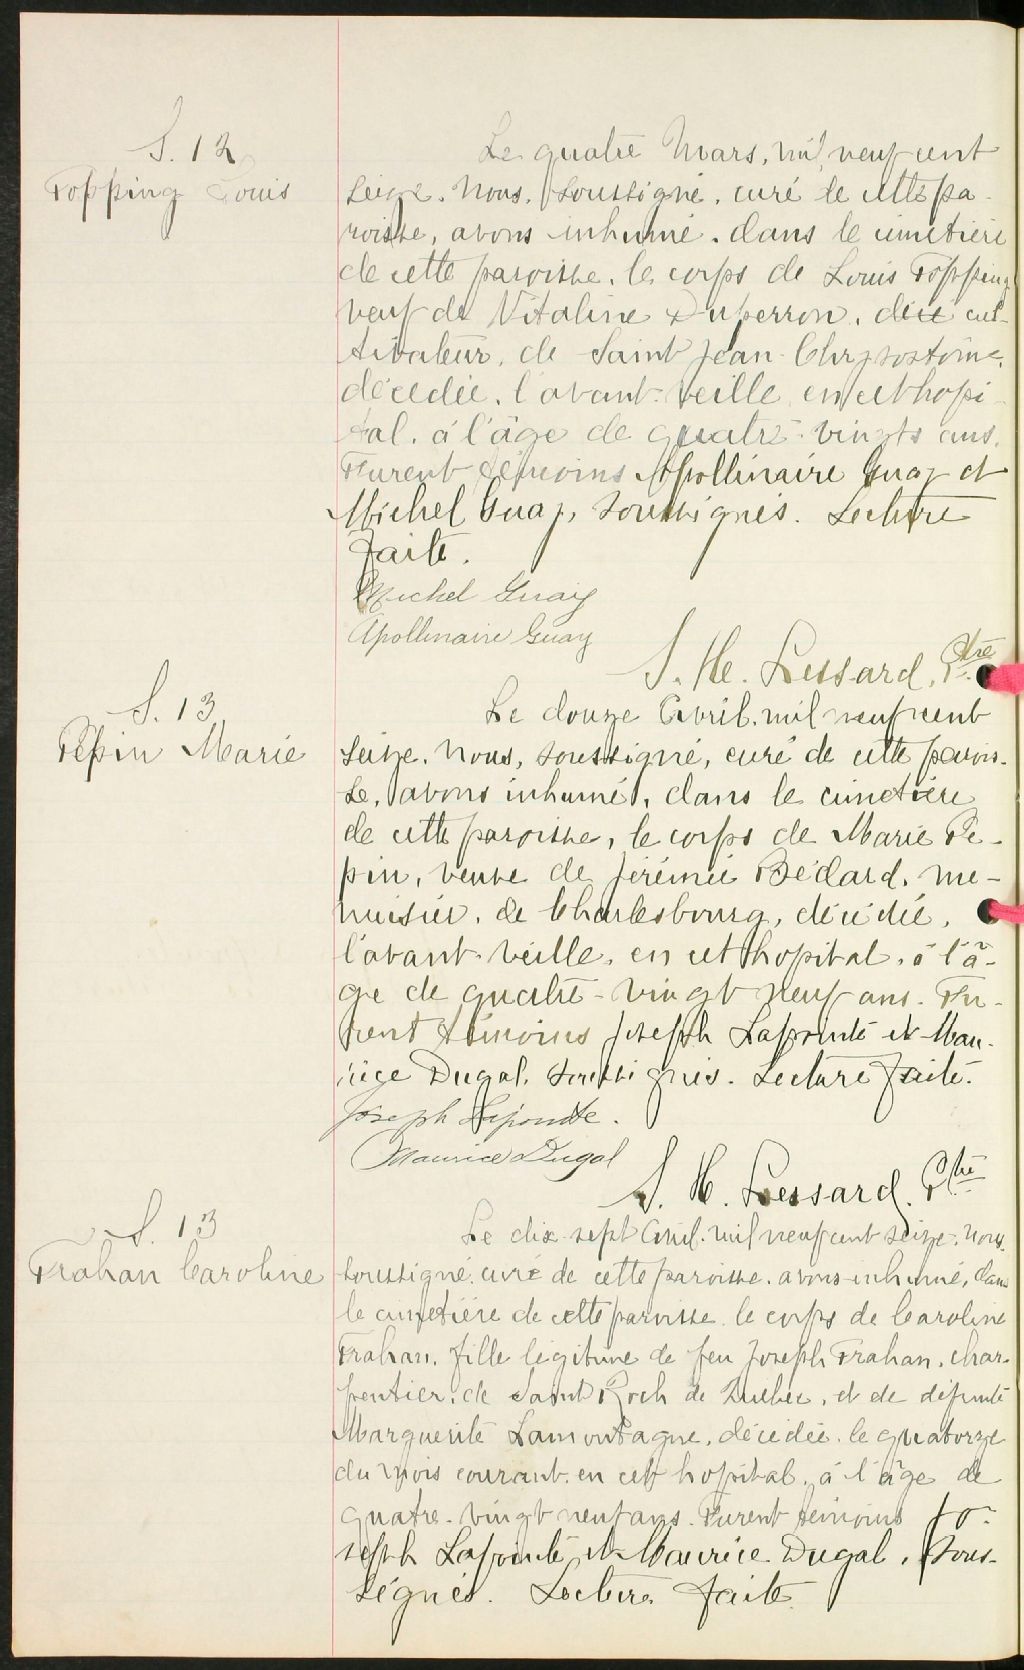 S. 12
Topping Louis
Le quatre Mars, mil neuf cent
seize. Nous, soussigné, curé de cette pa-
roisse, avons inhumé, dans le cimetière
de cette paroisse, le corps de Louis Topping
veuf de Vitaline Duperron, cul-
tivateur, de Saint Jean Chrysostôme,
décédée, l'avant-veille, en cet hopi-
tal, à l'âge de quatre-vingts ans.
Furent témoins Apollinaire Guay et
Michel Guay, soussignés. Lecture
faite.
Michel Guay
Apollinaire Guay
J. He. Lessard, Ptre
S. 13
Pépin Marie
Le douze Avril, mil neuf cent
seize. Nous, soussigné, curé de cette parois-
se, avons inhumé, dans le cimetière
de cette paroisse, le corps de Marie Pé-
pin, veuve de Jérémie Bédard, me-
nuisier, de Charlesbourg, décédée,
l'avant-veille, en cet hopital, à l'â-
ge de quatre-vingt neuf ans. Fu-
rent témoins Joseph Lapointe et Mau-
rice Dugal, soussignés. Lecture faite.
Joseph Lapointe.
Maurice Dugal
J. H. Lessard, Ptre
S. 13
Trahan Caroline
Le dix-sept Avril, mil neuf cent seize. Nous,
soussigné, curé de cette paroisse, avons inhumé, dans
le cimetière de cette paroisse, le corps de Caroline
Trahan, fille légitime de feu Joseph Trahan, char-
pentier, de Saint Roch de Québec, et de défunte
Marguerite Lamontagne, décédée, le quatorze
du mois courant, en cet hopital, à l'âge de
quatre-vingt neuf ans. Furent témoins Jo-
seph Lapointe et Maurice Dugal, sous-
signés. Lecture faite.